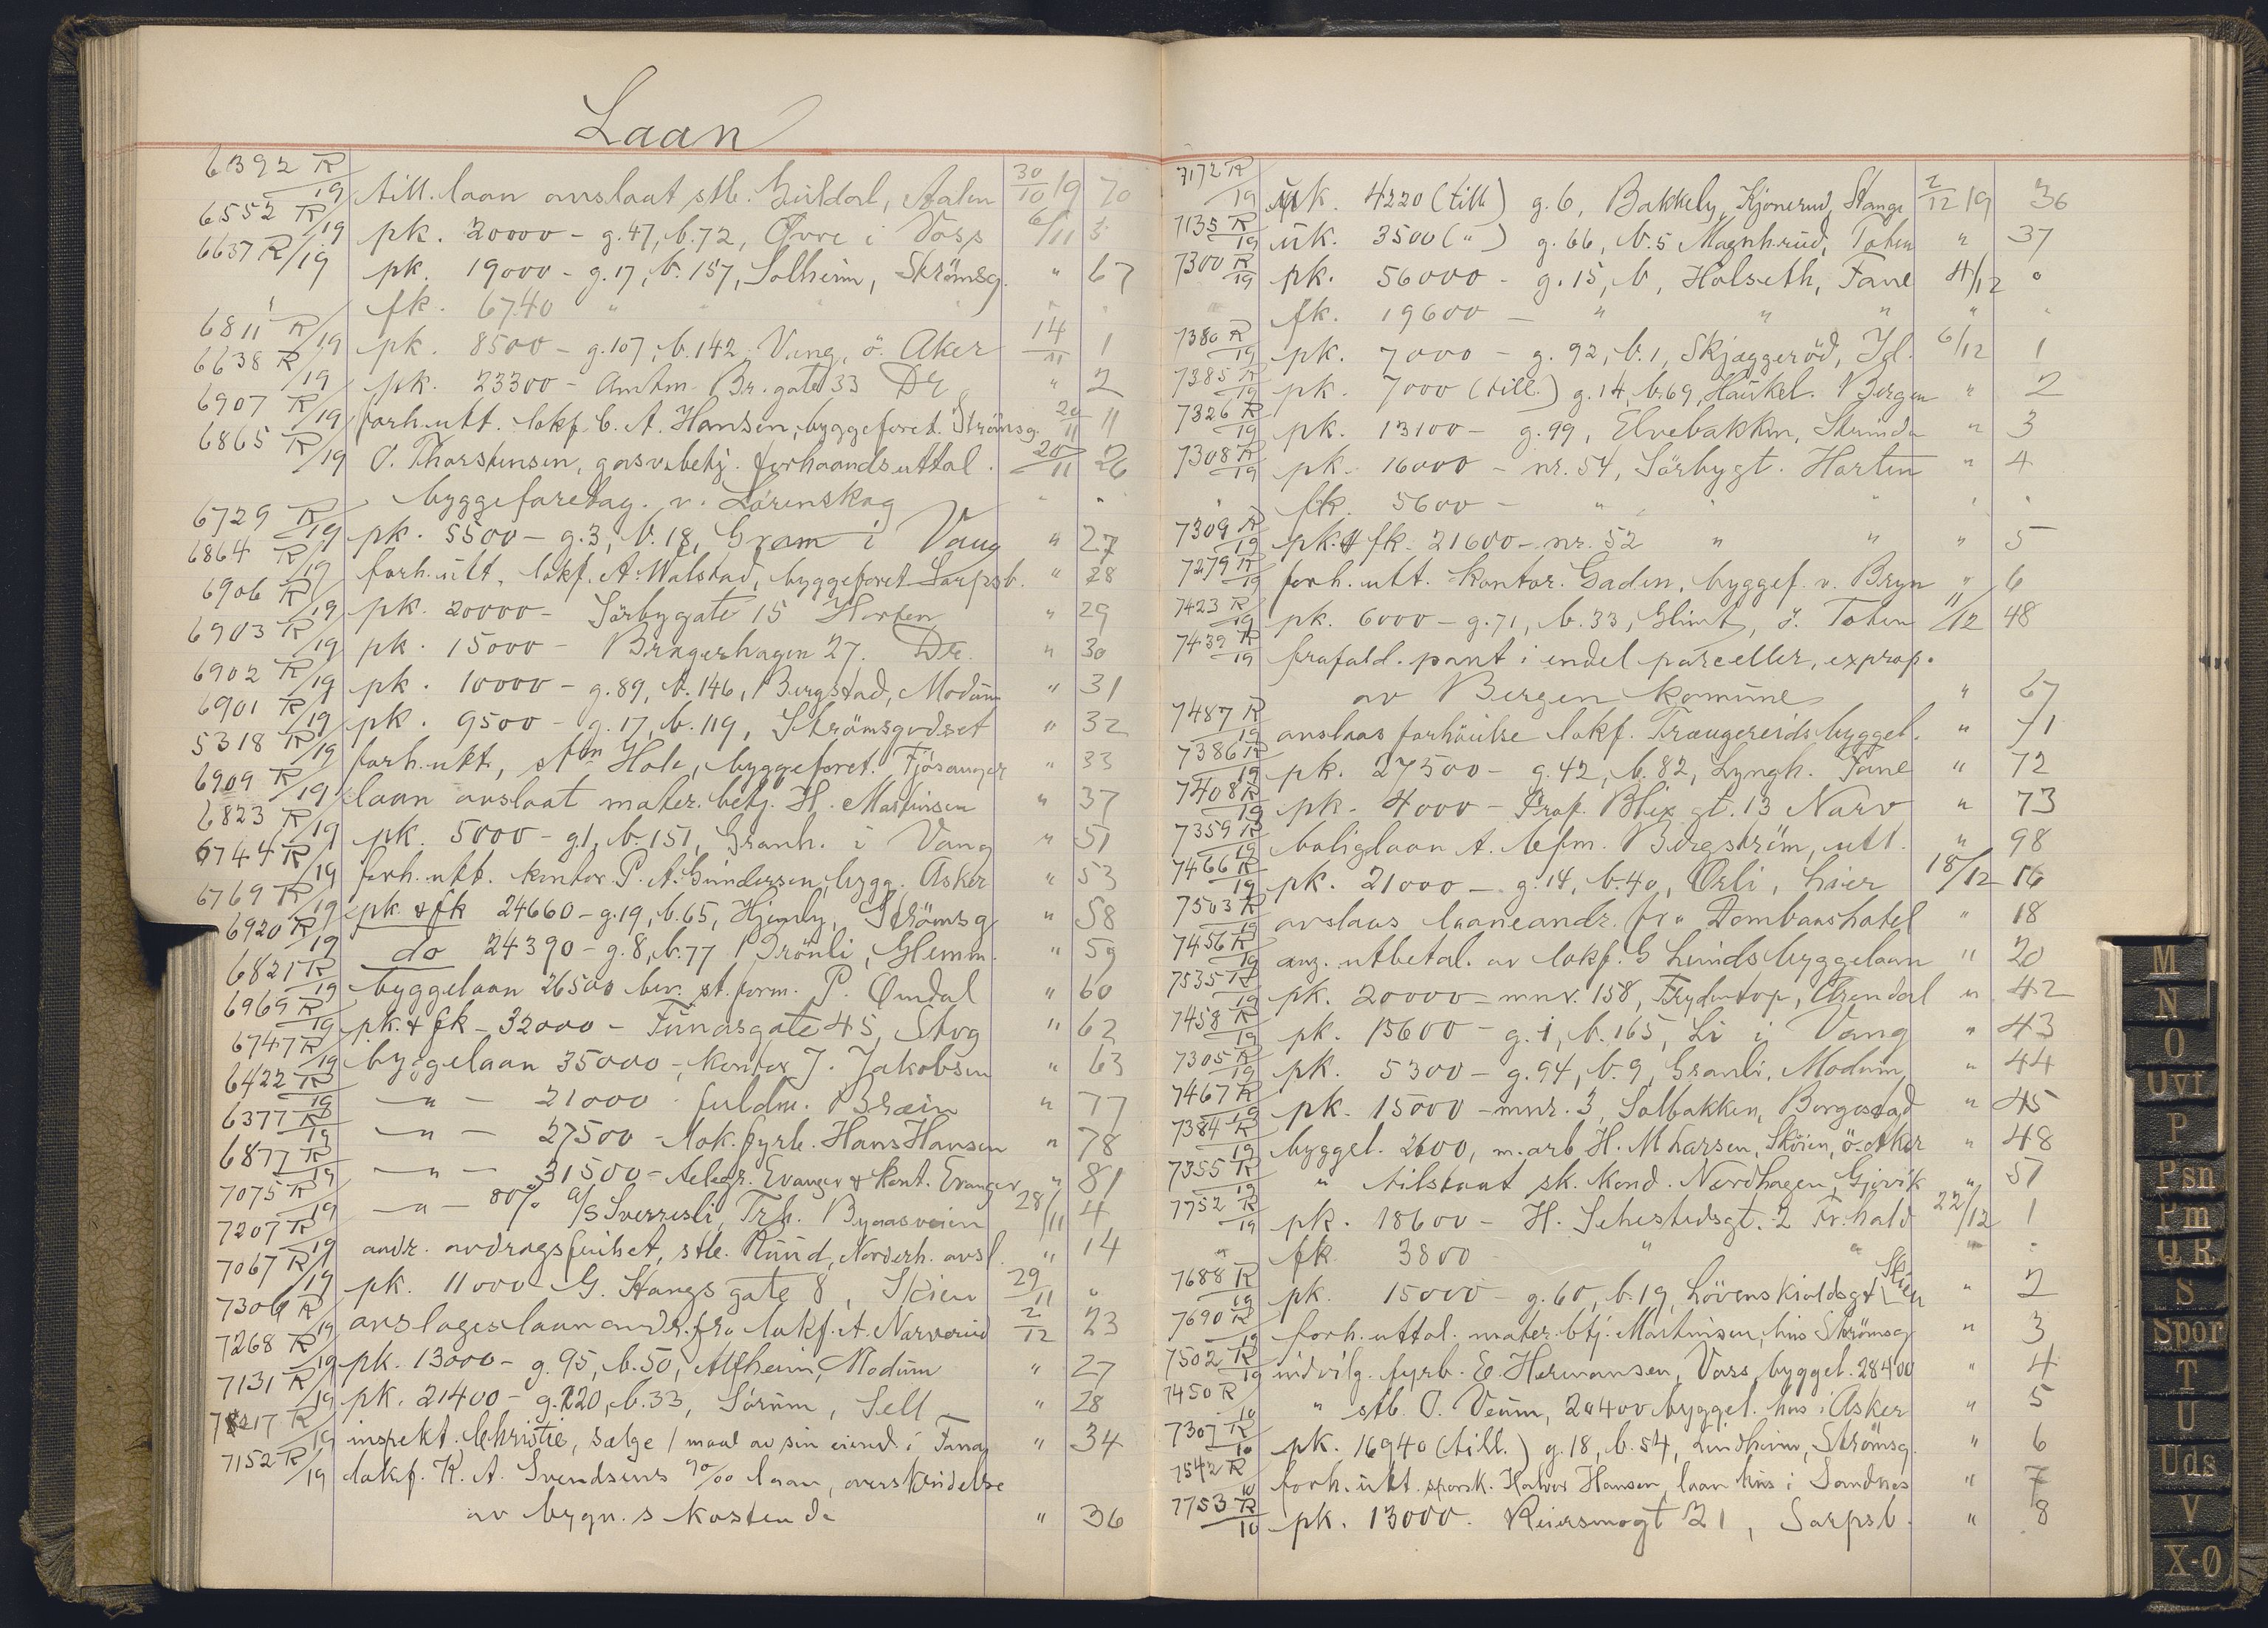 Laan
6392 R/19 till. laan avslaat stb. Guldal, Aalen 30/10 19 70
6552 R/19 pk. 20000 - g. 47, b. 72, Øvre i Voss 6/11 3
6637 R/19 pk. 19000 - g. 17, b. 157, Solheim, Strömsg. " 67
fk. 6740 " " "
6811 R/19 pk. 8500 - g. 107, b. 142, Vang, ö. Aker 14/11 1
6638 R/19 pk. 23300 - Amtm. Br. gate 33 Dr. " 2
6907 R/19 forh. utt. lokf. C. A. Hansen, byggeforet. Strömsg. 20/11 11
6865 R/19 O. Thorstensen, gasv.betj. forhaandsuttal. 20/11 26
byggeforetag. v. Lörenskog " "
6729 R/19 pk. 5500 - g. 3, b. 18, Gram i Vang " 27
6864 R/19 forh. utt. lokf. A. Walstad, byggeforet Sarpsb. " 28
6906 R/19 pk. 20000 - Sörbygate 15 Horten " 29
6903 R/19 pk. 15000 - Bragerhagen 27. Dr. " 30
6902 R/19 pk. 10000 - g. 89, b. 146, Bergstad, Modum " 31
6901 R/19 pk. 9500 - g. 17, b. 119, Strömsgodset " 32
5318 R/19 forh. utt., stbn Hole, byggeforet. Fjösanger " 33
6909 R/19 laan avslaat mater. betj. H. Martinsen " 37
6823 R/19 pk. 5000 - g. 1, b. 151, Granh. i Vang " 51
6744 R/19 forh. utt. kontor. P. A. Gundersen, bygg. Asker " 53
6769 R/19 pk & fk 24660 - g. 19, b. 65, Hjemly, Strömsg " 58
6920 R/19 do 24390 - g. 8, b. 77 Grönli, Glemm. " 59
6821 R/19 byggelaan 26500 bev. st. form. P. Omdal " 60
6969 R/19 pk. & fk - 32000 - Funasgate 45, Stvg " 62
6747 R/19 byggelaan 35000 - kontor J. Jakobsen " 63
6422 R/19 — " — 21000 fuldm. Bræin " 77
6377 R/19 — " — 27500 - lok. fyrb. Hans Hansen " 78
6877 R/19 — " — 31500 - telegr. Evanger & kont. Evanger " 81
7075 R/19 — " — 80% A/S Sverresli, Trh. Byaasveien 28/11 4
7207 R/19 andr. avdragsfrihet, stb. Ruud, Norderh. avsl. " 14
7067 R/19 pk. 11000 - G. Stangs gate 8, Skien 29/11 "
7306 R/19 avslag laaneandr. fra lokf. A. Narverud 2/12 23
7268 R/19 pk. 13000 - g. 95, b. 50, Alfheim, Modum " 27
7131 R/19 pk. 21400 - g. 220, b. 33, Sörum, Sell " 28
7217 R/19 inspekt. Christie, sælge 1 maal av sin eiend. i Fana " 34
7152 R/19 lokf. K. A. Svendsens 90/00 laan, overskridelse
av bygn.s kostende " 36
7172 R/19 uk. 4220 (till) g. 6, Bakkely, Kjonerud, Stange 2/12 19 36
7135 R/19 uk. 3500 (") g. 66, b. 5 Magnhrud, Toten " 37
7300 R/19 pk. 56000 - g. 15, b, Holseth, Fane 4/12 "
fk. 19600 — " " " " "
7380 R/19 pk. 7000 - g. 92, b. 1, Skjæggeröd, Id. 6/12 1
7385 R/19 pk. 7000 (till.) g. 14, b. 69, Haukel. Bergen " 2
7326 R/19 pk. 13100 - g. 99, Elvebakken, Strinda " 3
7308 R/19 pk. 16000 - nr. 54, Sörbygt. Horten " 4
" fk. 5600 - " " " " "
7309 R/19 pk. & fk. 21600 - nr. 52 " " " 5
7279 R/19 forh. utt. kontor. Gaden, byggef. v. Bryn " 6
7423 R/19 pk. 6000 - g. 71, b. 33, Glimt, ö. Toten 11/12 48
7439 R/19 frafald. pant i endel parceller, exprop.
av Bergen komune " 67
7487 R/19 avslaas forhöielse lokf. Træugereids byggel. " 71
7386 R/19 pk. 27500 - g. 42, b. 82, Lyngh. Fane " 72
7408 R/19 pk. 4000 - Prof. Blix gt. 13 Narv " 73
7359 R/19 boliglaan A. bfm. Bergström, utt. " 98
7466 R/19 pk. 21000 - g. 14, b. 40, Orli, Lier 18/12 16
7503 R/19 avslaas laaneandr. fra Dombaashotel " 18
7456 R/19 ang. utbetal. av lokf. G Lunds byggelaan " 20
7535 R/19 pk. 20000 - mnr. 158, Frydentop, Arendal " 42
7458 R/19 pk. 15600 - g. 1, b. 165, Li i Vang " 43
7305 R/19 pk. 5300 - g. 94, b. 9, Granli, Modum, " 44
7467 R/19 pk. 15000 - mnr. 3, Solbakken, Borgestad " 45
7384 R/19 byggel. 2600, m. arb. H. M Larsen, Sköien, ö. Aker " 48
7355 R/19 " tilstaat sk. kond. Nordhagen, Gjövik " 51
7752 R/19 pk. 18600 - H. Sehestedsgt. 2 Fr.hald 22/12 1
" fk. 3800 " " " "
7688 R/19 pk. 15000 - g. 60, b. 19, Lövenskioldsgt Skien " 2
7690 R/19 forh. uttal. mater. btj. Martinsen, hus Strömsg " 3
7502 R/19 indvilg. fyrb. E. Hermansen, Voss byggel. 28400 " 4
7450 R/10 " stb. O. Veum, 20400 byggel. hus i Asker " 5
7307 R/10 pk. 16940 (till.) g. 18, b. 54, Lindheim, Strömsg. " 6
7542 R/10 forh. utt. sporsk. Halvor Hansen, laan hus i Sandnes " 7
7753 R/10 pk. 13000. Reiersmogt 21, Sarpsb. " 8
M
N
O
Ovf
P
Psn
Pm
Q R
S
Spor
T
U
Uds
V
X-Ø